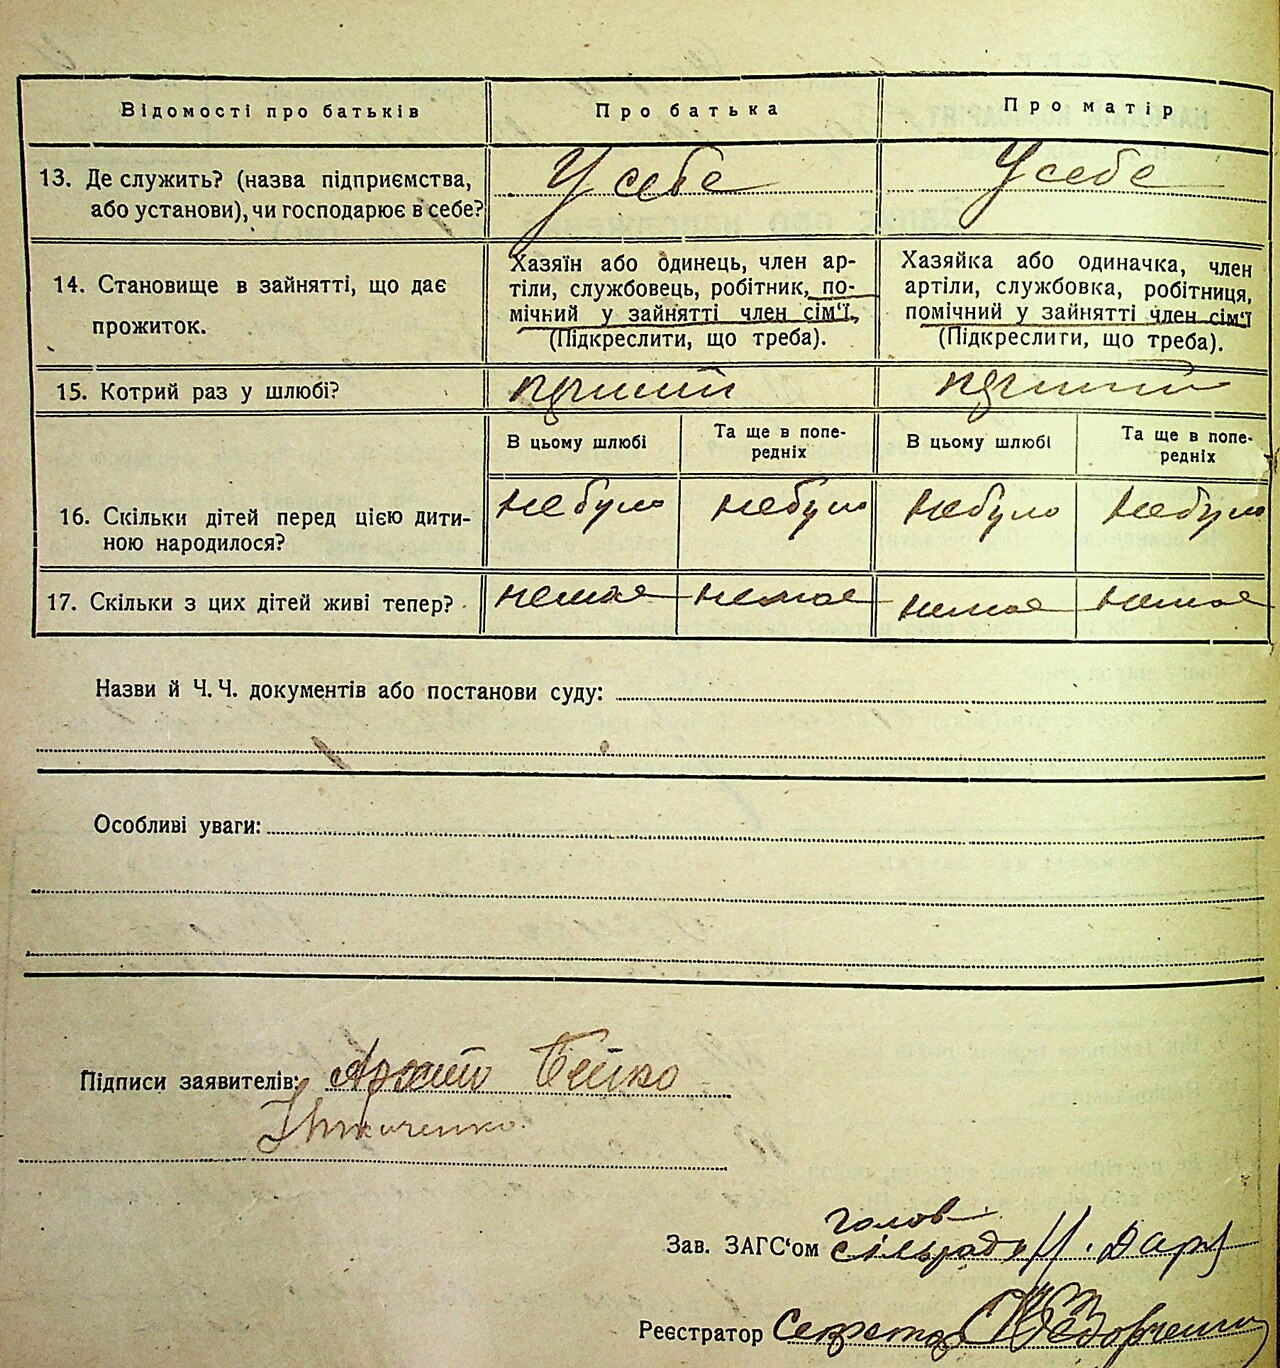 Відомості про батьків Про батька Про матір
13. Де служить? (назва підприємства, або установи), чи господарює в себе?
У себе У себе
14. Становище в зайнятті, що дає прожиток.
Хазяїн або одинець, член ар-
тіли, службовець, робітник, по-
мічний у зайнятті член сім'ї,
(Підкреслити, що треба).
Хазяйка або одиначка, член
артіли, службовка, робітниця,
помічний у зайнятті член сім'ї
(Підкреслити, що треба).
15. Котрий раз у шлюбі? перший перший
В цьому шлюбі Та ще в попе-
редніх В цьому шлюбі Та ще в попе-
редніх
16. Скільки дітей перед цією дити-
ною народилося?
небуло небуло небуло небуло
17. Скільки з цих дітей живі тепер? немає немає немає немає
Назви й Ч. Ч. документів або постанови суду:
Особливі уваги:
Підписи заявителів: Бейко
Ткаченко.
голов
Зав. ЗАГС'ом сільради
Реєстратор Секретар